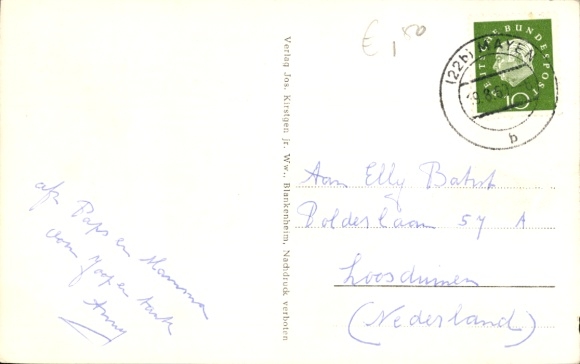 € 1,50
DEUTSCHE BUNDESPOST
10
(22b) MAYEN
b
Verlag Jos. Kirstgen jr. Ww., Blankenheim, Nachdruck verboten
Aan Elly
Polderlaan 57 A
Loosduinen
(Nederland)
afz Paps en Mamma
oom Joop en tante
Anny